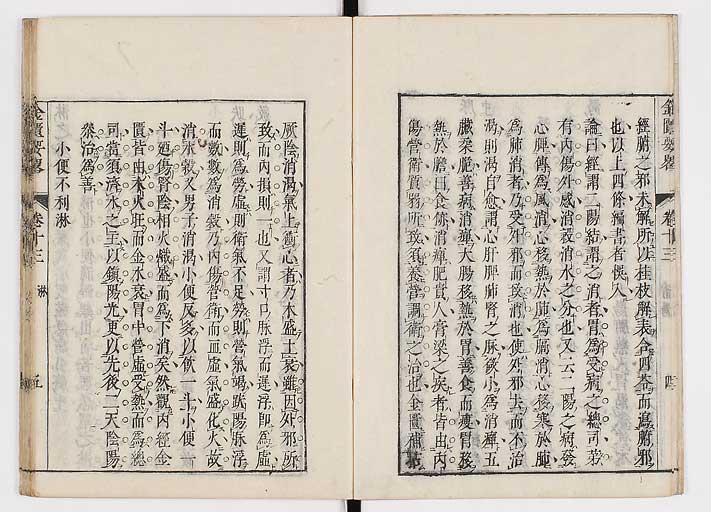 經腑之邪未解所以桂枝解表合四苓而瀉腑邪
也以上四條編書者悞入
論曰經謂二陽結謂之消者胃爲受病之總司若
有內傷外感消穀消水之分也又云二陽之病發
心脾傳爲風消心移熱於肺爲膈消心移寒於肺
爲肺消者乃受外邪而致消也使外邪去而不治
渴則渴自愈謂心肝脾肺腎之脉微小爲消癉五
臟柔脆善病消癉大腸移熱於胃善食而瘦胃移
熱於膽曰食㑊消癉肥貴人膏梁之疾者皆由內
傷營衛質弱所致須養營調衛之治也金匱
厥陰消渴氣上衝心者乃木盛土衰雖因外邪所
致而內損則一也又謂寸口脉浮而遲浮卽爲虛
遲則爲勞虛則衛氣不足勞則營氣竭趺陽脉浮
而數數爲消穀乃內傷營衛而血虛氣盛化火故
消水穀又男子消渴小便反多以飲一斗小便一
斗廼傷腎陰相火熾盛而爲下消矣然觀內經金
匱皆由木火旺而金水衰胃中營虛受熱而爲總
司當須濟水之主以鎮陽光更以先後二天陰陽
叅治爲善
小便不利淋
金匱要畧
卷十三
淋
五